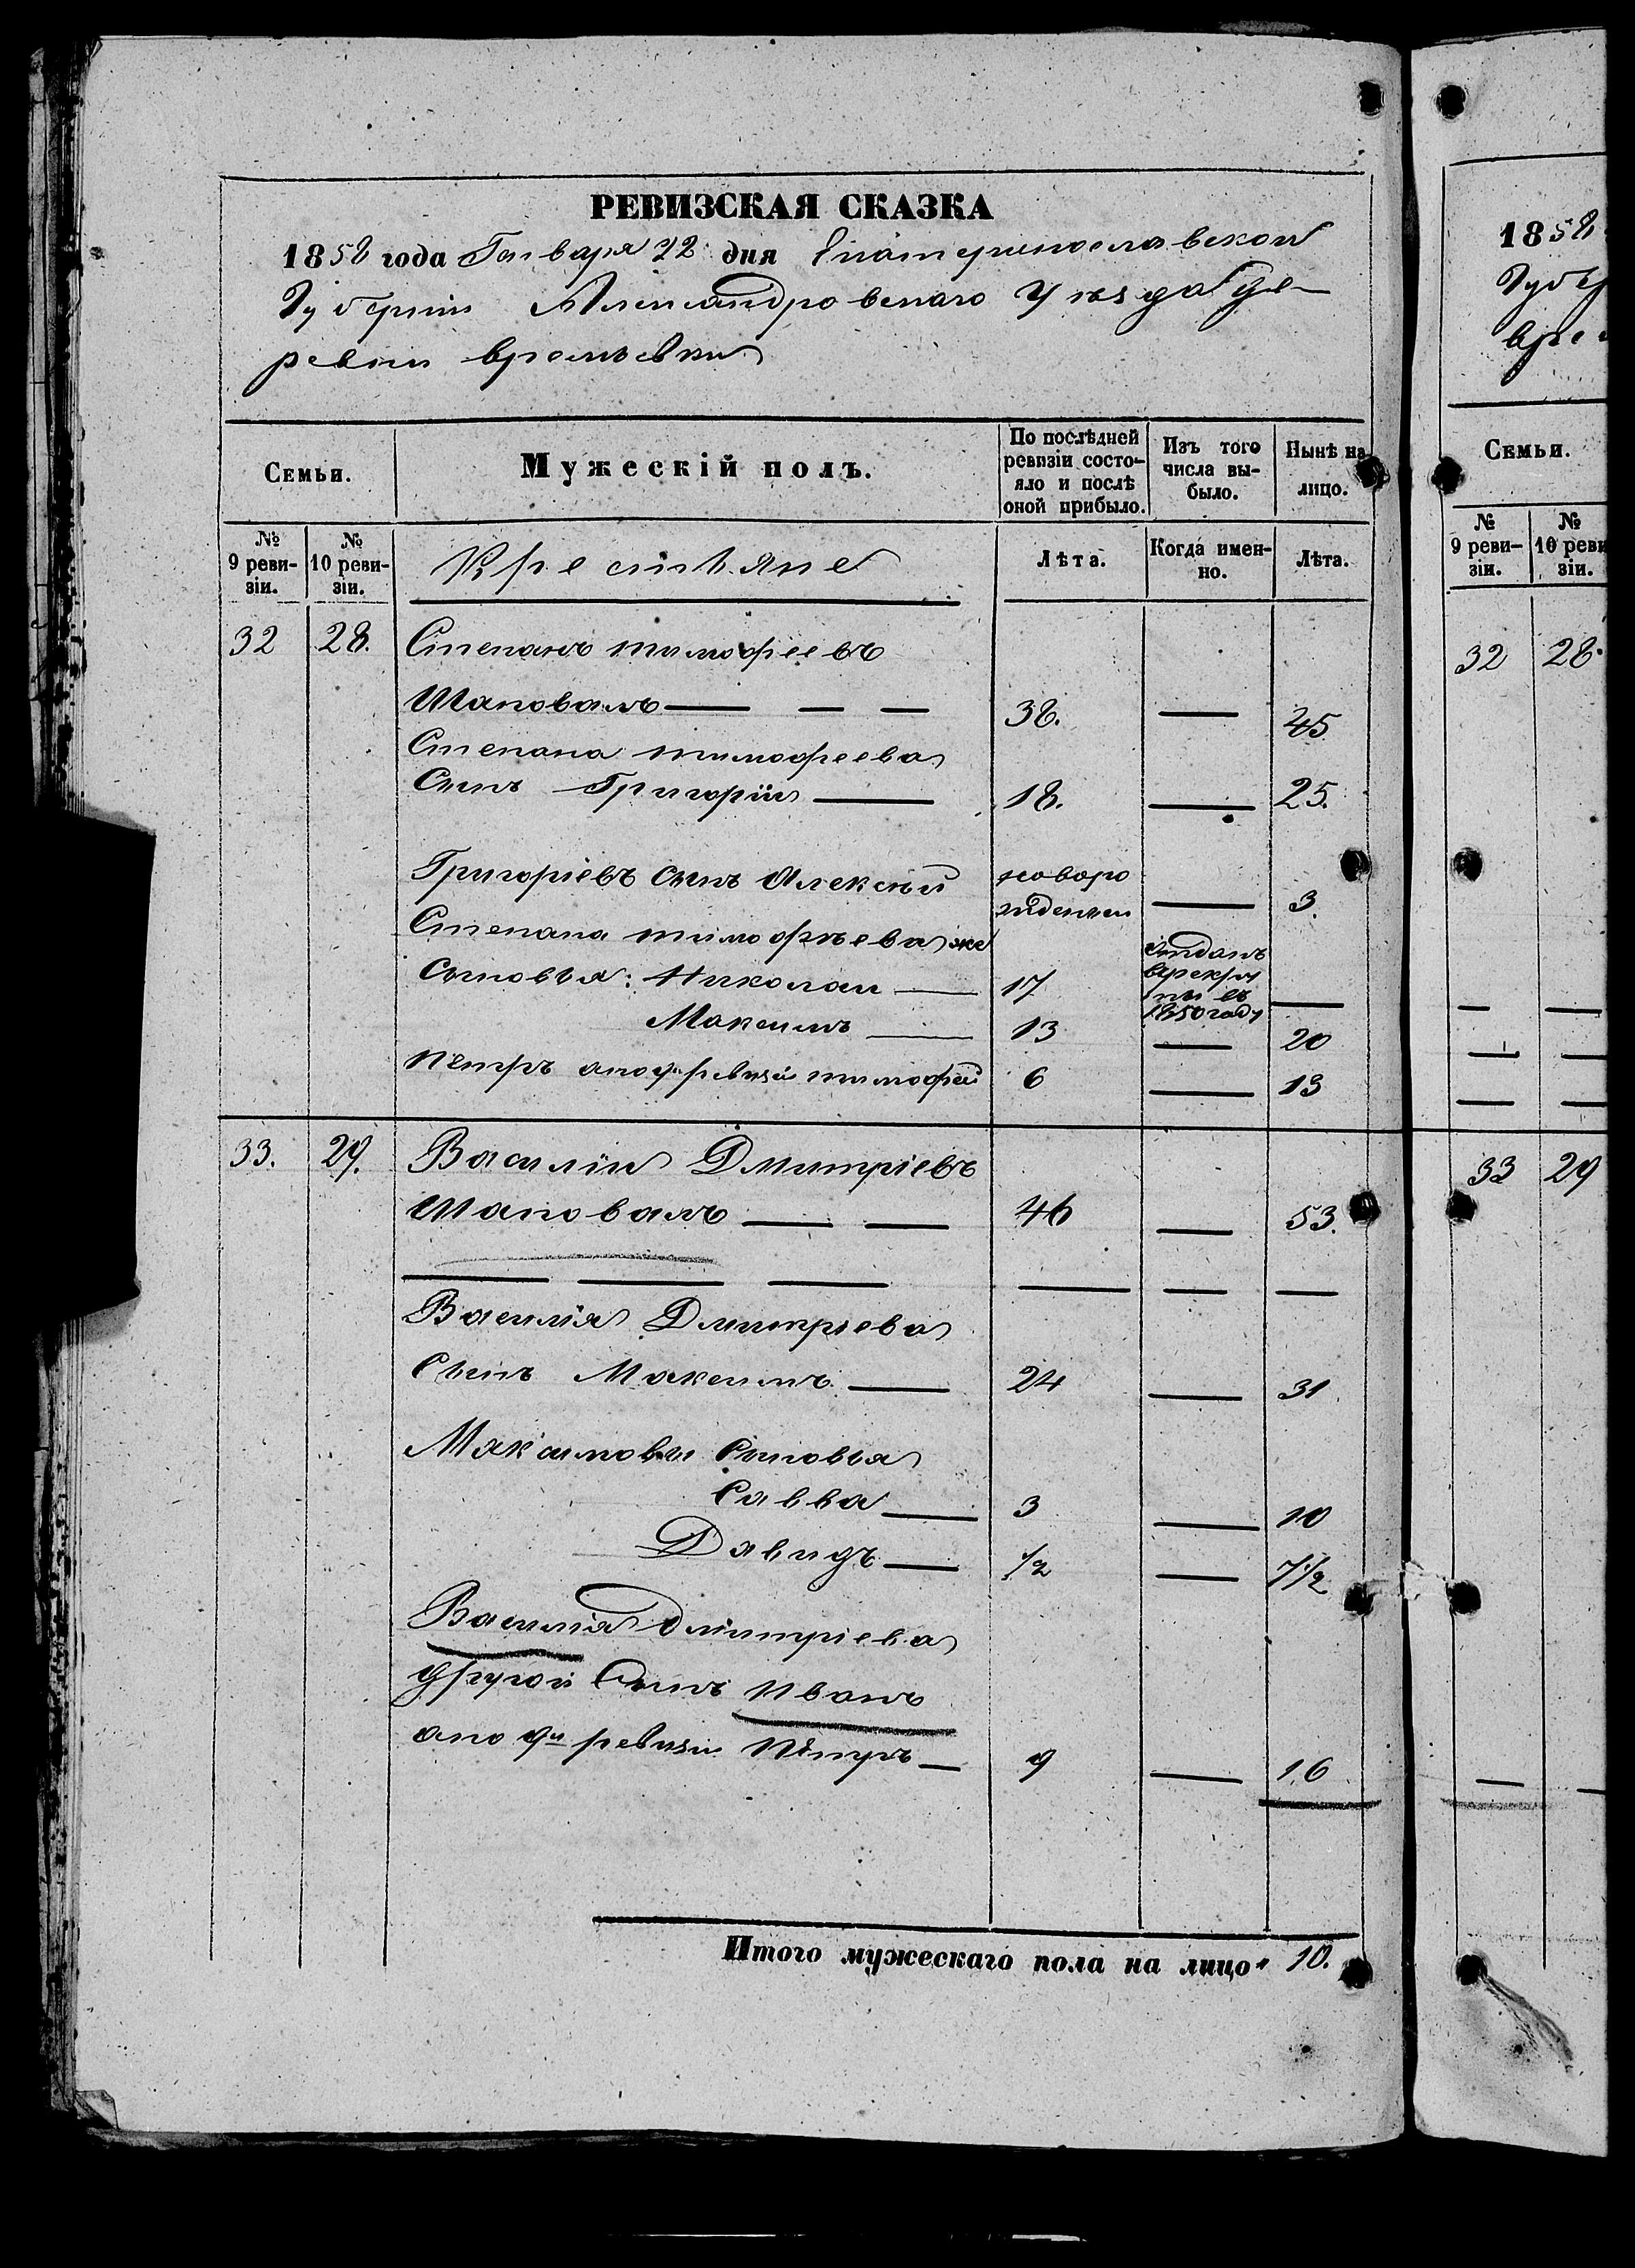 РЕВИЗСКАЯ СКАЗКА
1858 года Генваря 22 дня Екатеринославской
Губернии Александровскаго Уѣзда де-
ревни Времѣевки
Семьи. Мужескій полъ. По послѣдней ревизіи состо-яло и послѣ оной прибыло. Изъ того числа вы-было. Нынѣ на лицо.
№ 9 реви-зіи. № 10 реви-зіи. Крестьяне Лѣта. Когда имен-но. Лѣта.
32 28. Степанъ тимофеевъ
Шаповалъ 38. 45
Степана тимофеева
Сынъ Григорій 18. 25.
Григоріевъ сынъ Алексѣй новорожденъ 3.
Степана тимофѣева же
Сыновья: Николай 17 отданъ в рекруты въ 1850 году
Максимъ 13 20
Петръ апо 9й ревизіи тимофей 6 13
33. 29. Василій Дмитріевъ
Шаповалъ 46 53.
Василія Дмитріева
Сынъ Максимъ 24 31
Максимовы Сыновья
Савва 3 10
Давидъ 1/2 7 1/2
Василія Дмитріева
другой Сынъ Иванъ
апо 9й ревизіи Пётръ 9 16
Итого мужескаго пола на лицо 10.
1858
Губер
Вре
Семьи.
№ 9 реви-зіи. № 10 реви зіи.
32 28.
33 29